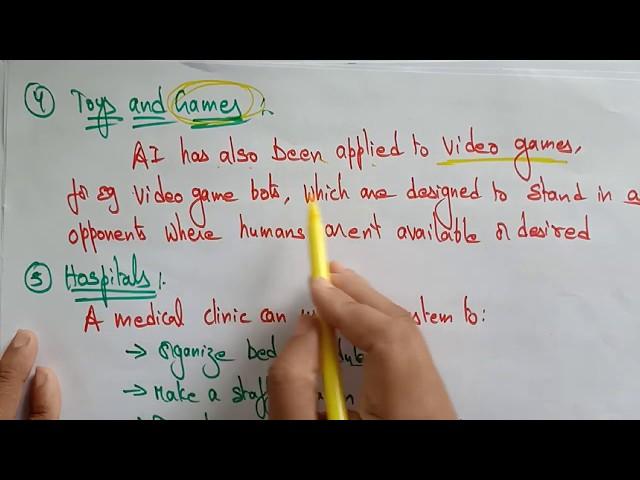 ④ Toys and Games :
AI has also been applied to video games,
for eg video game bots, which are designed to stand in a
opponents where humans aren't available or desired
⑤ Hospitals :
A medical clinic can stem to:
→ Organize bed
→ Make a staff